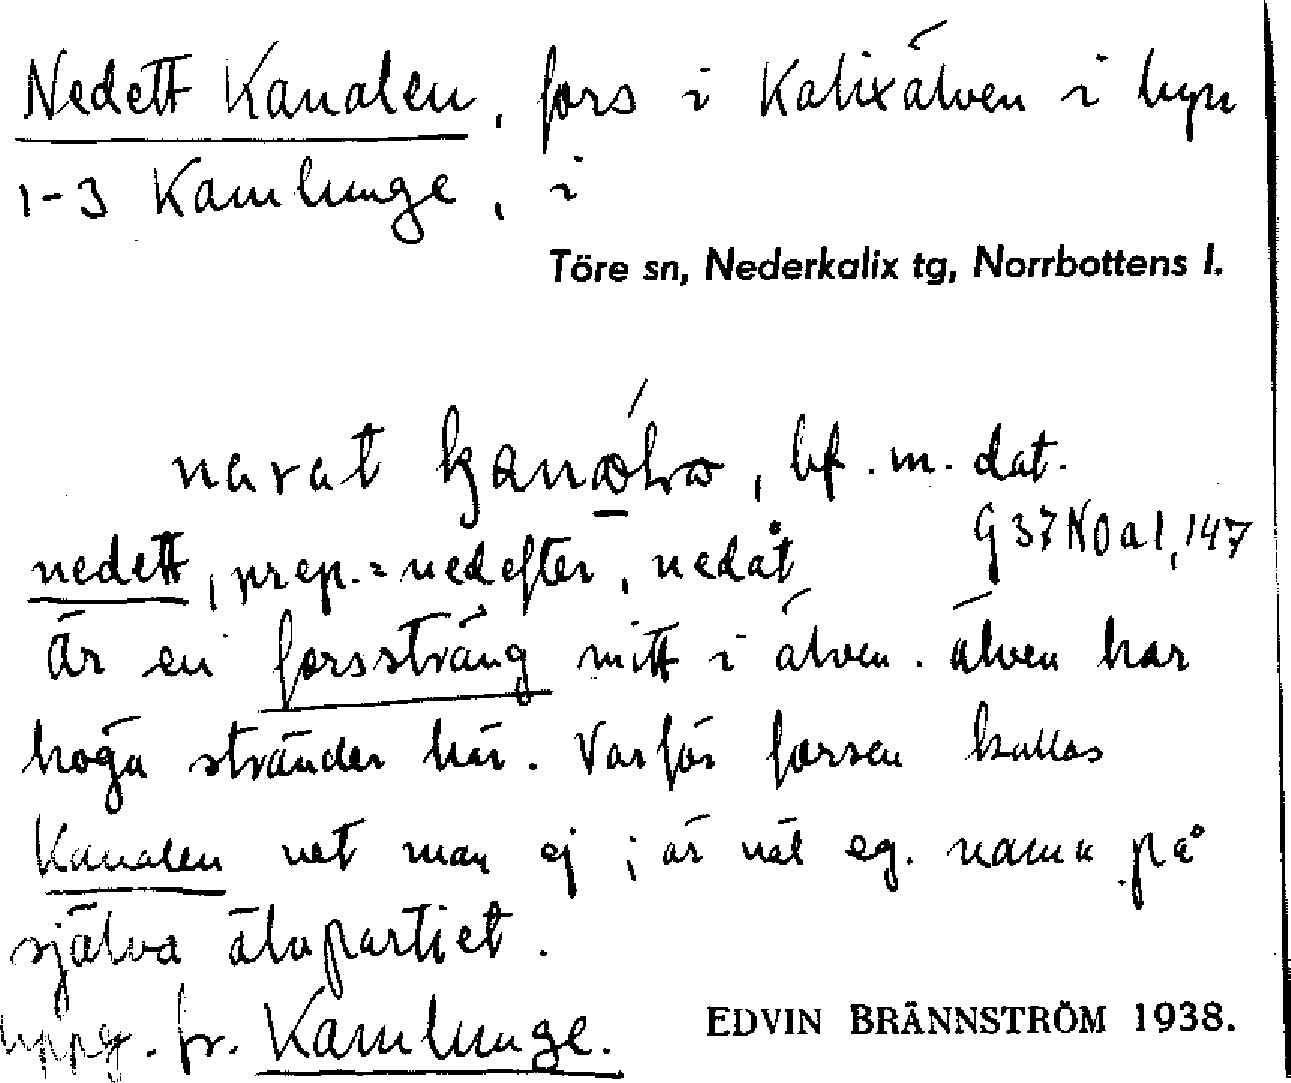 Nedett Kanalen, fors i Kalixälven i byn
1-3 Kamlunge, i
Töre sn, Nederkalix tg, Norrbottens l.
bf. m. dat.
G 37 NO a 1, 147
nedett, prep. = nedefter, nedåt
är en forssträng mitt i älven. älven har
höga stränder här. Varför forsen kallas
Kanalen vet man ej; är väl eg. namn på
själva älvpartiet.
Uppg. fr. Kamlunge.
EDVIN BRÄNNSTRÖM 1938.